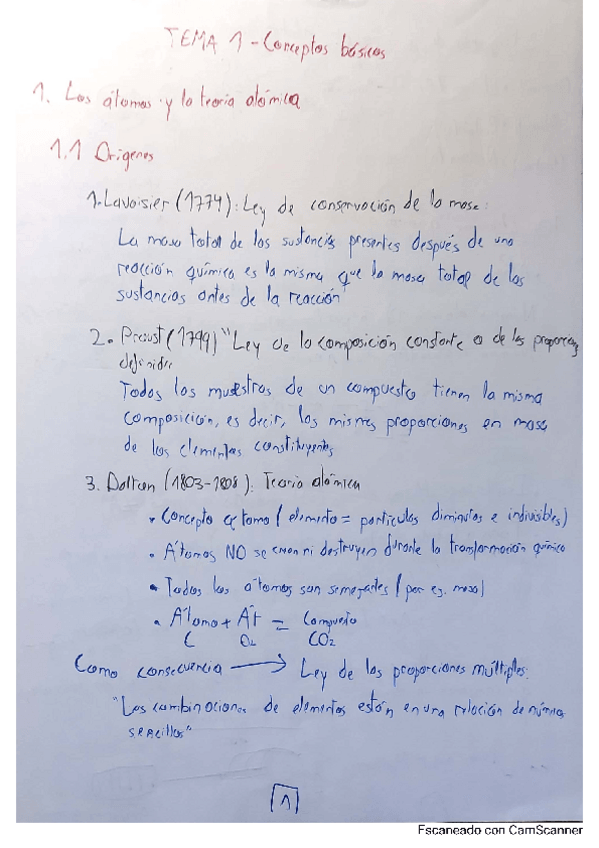 TEMA 1 - Conceptos básicos
1. Los átomos y la teoría atómica
1.1 Orígenes
1. Lavoisier (1774): Ley de conservación de la masa:
La masa total de las sustancias presentes después de una
reacción química es la misma que la masa total de las
sustancias antes de la reacción"
2. Proust (1799) "Ley de la composición constante o de las proporciones
definidas
Todas las muestras de un compuesto tienen la misma
composición, es decir, las mismas proporciones en masa
de los elementos constituyentes
3. Dalton (1803-1808): Teoría atómica
• Concepto átomo (elemento = partículas diminutas e indivisibles)
• Átomos NO se crean ni destruyen durante la transformación química
• Todos los átomos son semejantes (por ej. masa)
• Átomo + Át = Compuesto
C O₂ CO₂
Como consecuencia → Ley de las proporciones múltiples:
"Las combinaciones de elementos están en una relación de números
sencillos"
1
Escaneado con CamScanner